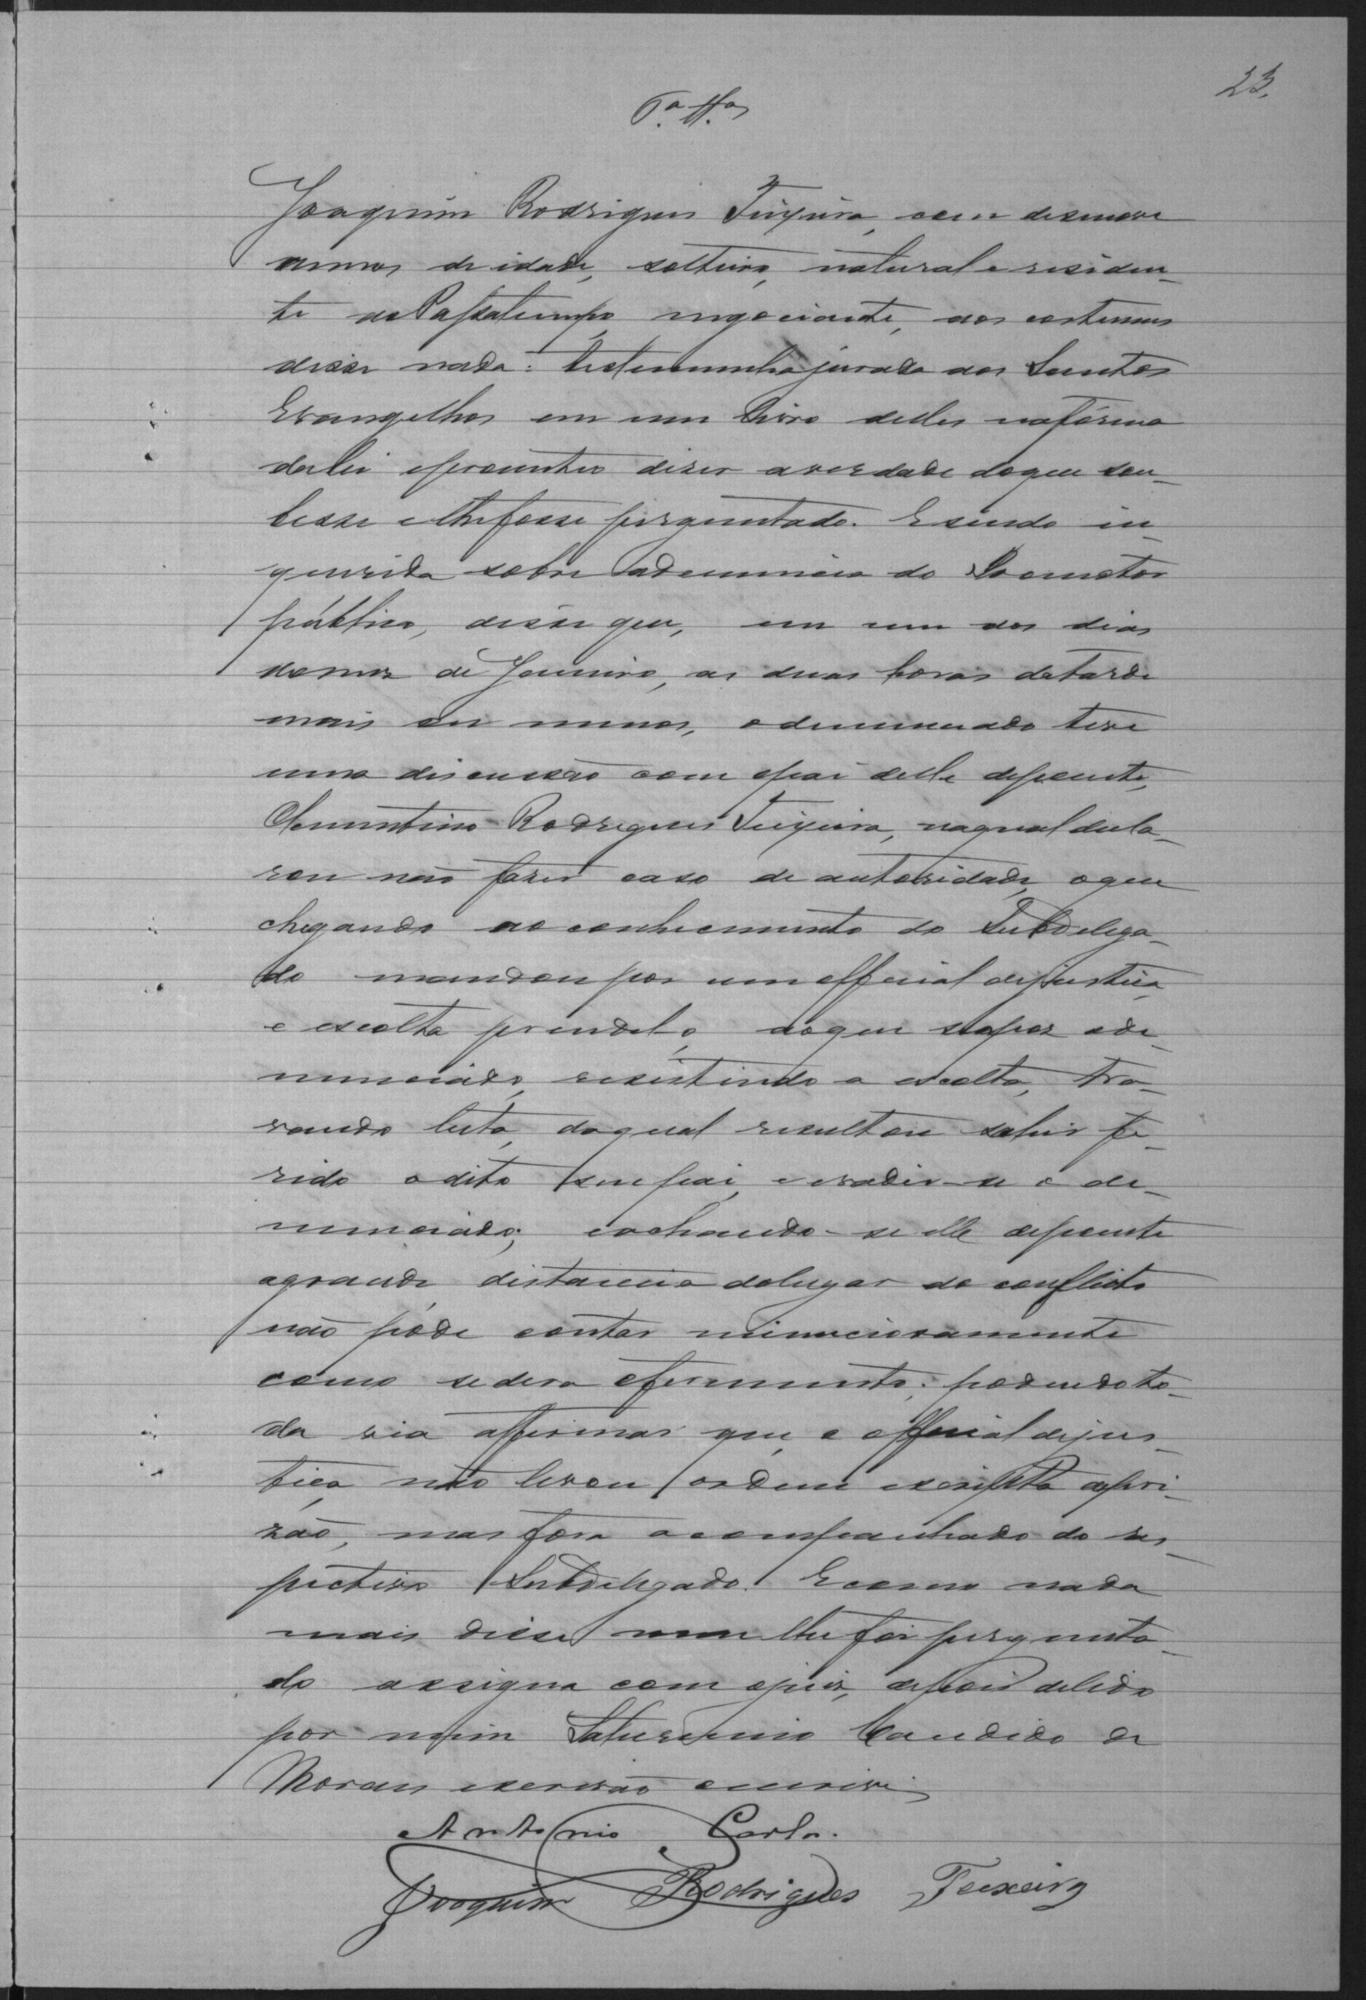 23.
6.ª Tt.ª
Joaquim Rodrigues Teixeira, com desenove
annos de idade, solteiro, natural e residen_
te do Passatempo, negociante, aos costumes
disse nada: testemunha jurada aos Santos
Evangelhos em um livro delles na fórma
da lei e prometteo diser a verdade do que sou_
besse e lhe fosse perguntado. E sendo in_
querida sobre a denuncia do Promotor
público, disse que, em um dos dias
do mez de Janeiro, as duas horas da tarde
mais ou menos, o denunciado teve
uma discussão com o pai delle depoente,
Clementino Rodrigues Teixeira, na qual decla_
rou não faser caso de autoridade, o que
chegando ao conhecimento do Subdelega_
do mandou por um official de justiça
e escolta prendel-o, ao que se opoz o de_
nunciado, resistindo a escolta, tra_
vando luta, da qual resultou sahir fe_
rido o dito seu pai, e evadir-se o de_
nunciado; e achando-se elle depoente
a grande distancia do lugar do conflicto
não póde contar minuciosamente
como se dera o ferimento; podendo to_
da via affirmar que o official de jus_
tiça não levou ordem escripta de pri_
zão, mas fôra acompanhado do res_
pectivo Subdelegado. E como nada
mais disse nem lhe foi pergunta_
do assigna com o juiz, depois de lido
por mim Saturnino Candido de
Moraes escrivão o escrevi
Antonio Carlo.
Joaquim Rodrigues Teixeira